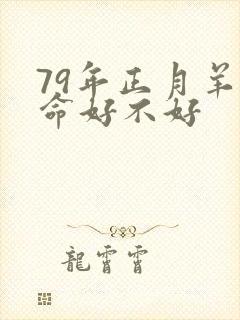 79年正月羊
命好不好
龍霄霄